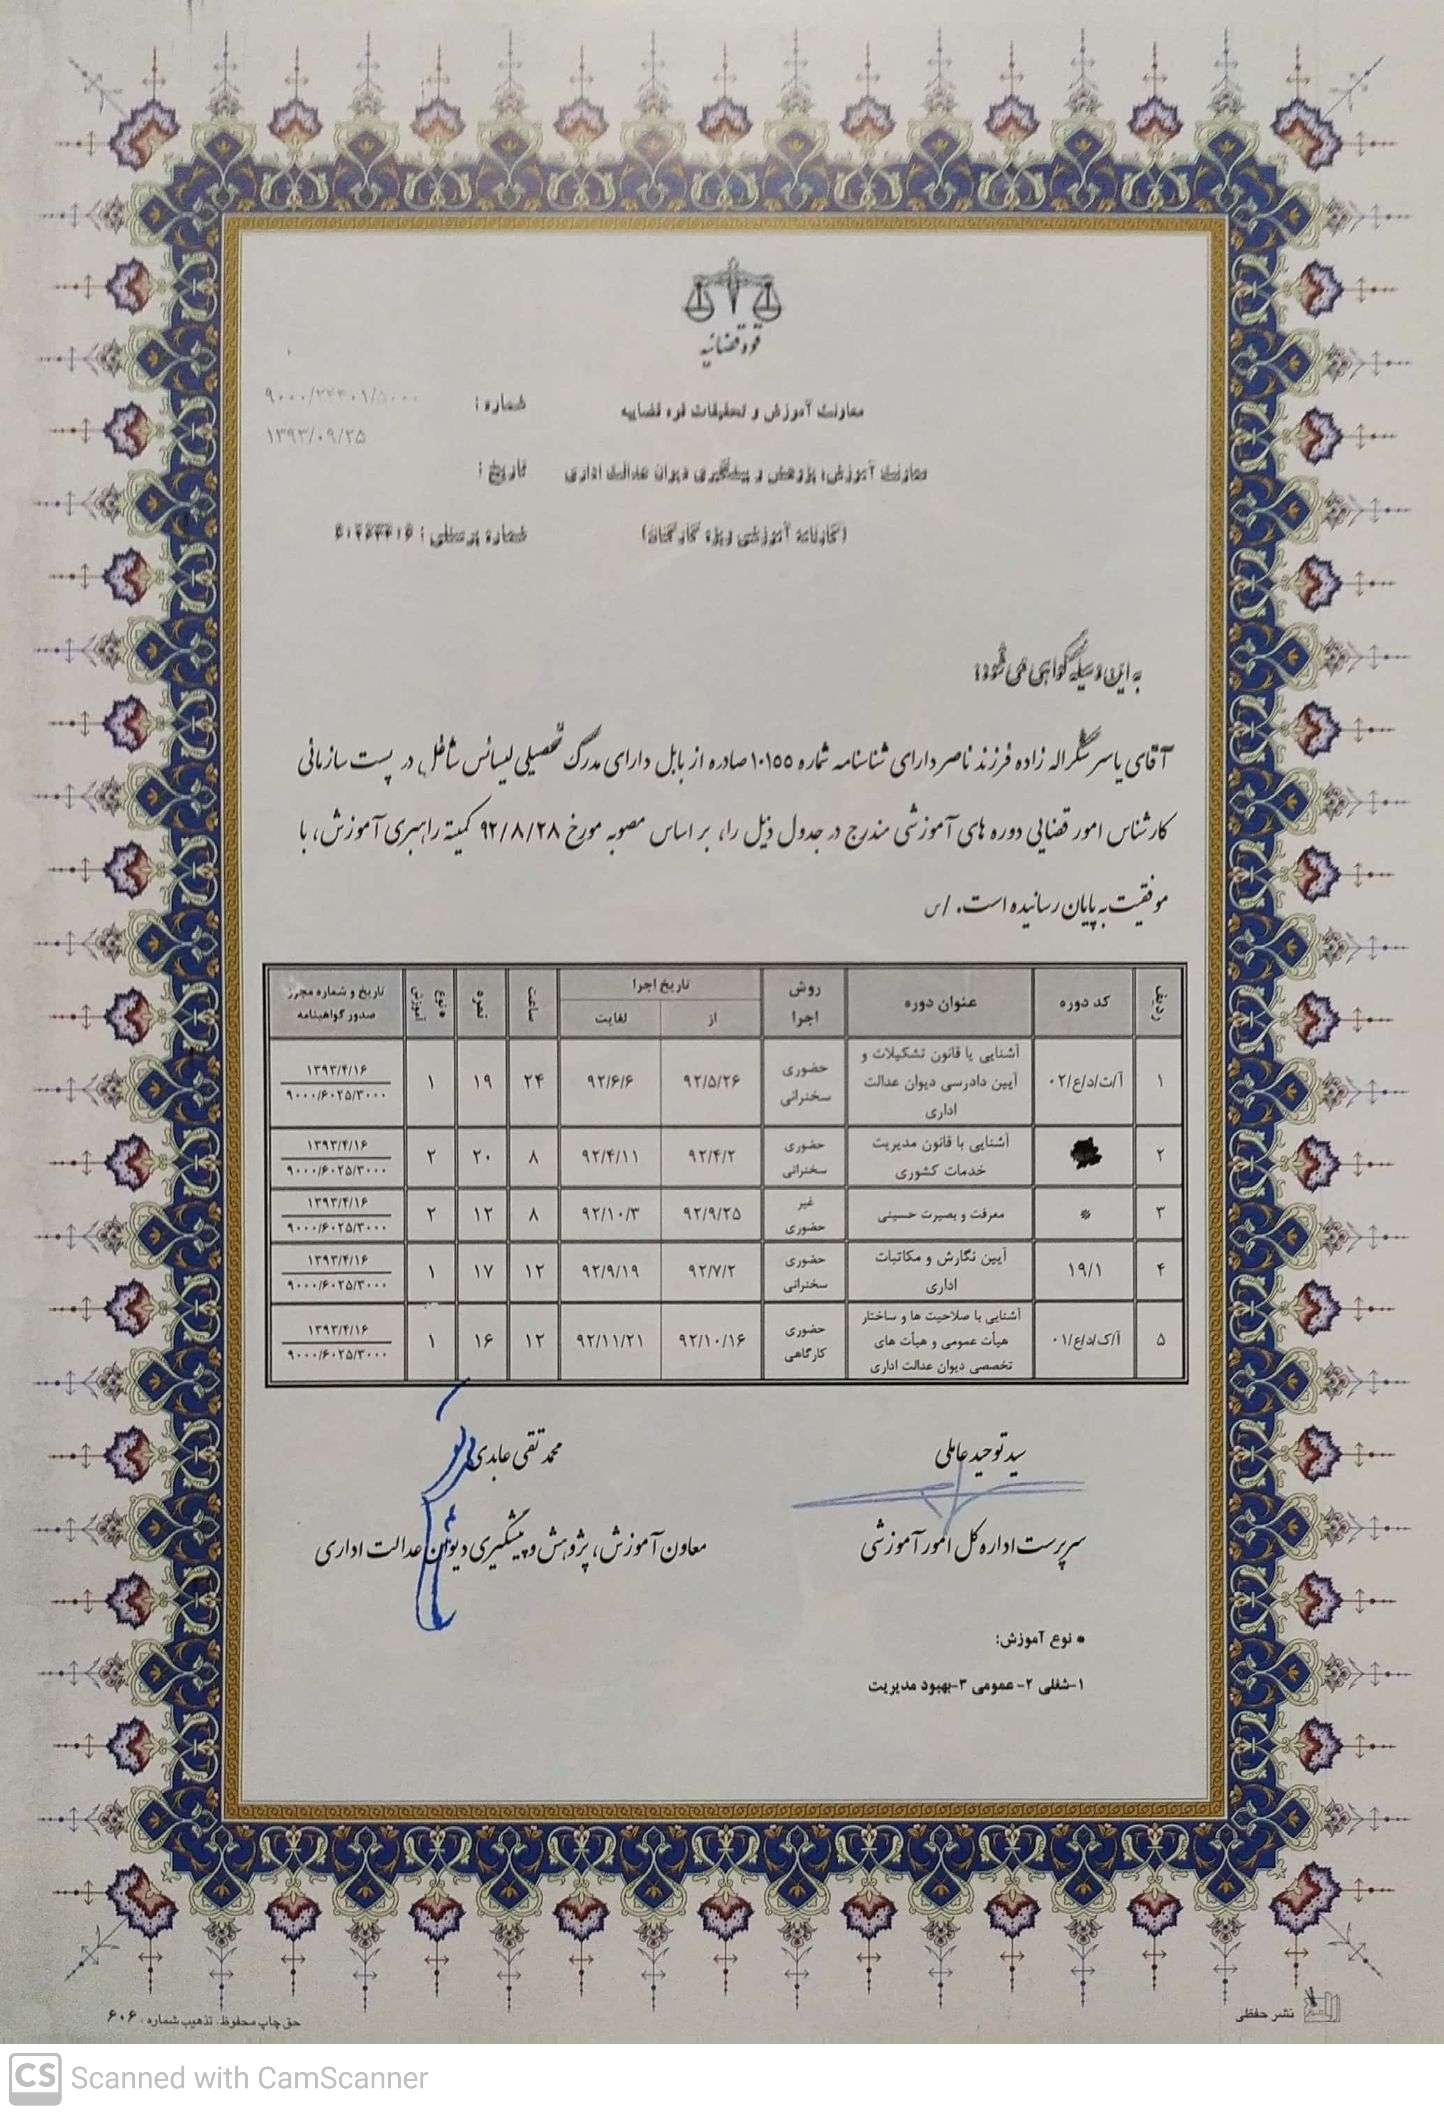 قوه قضائیه
معاونت آموزش و تحقیقات قوه قضاییه
شماره :
۹۰۰۰/۲۴۴۰۹/۵۰۰۰
۱۳۹۳/۰۹/۲۵
معاونت آموزش، پژوهش و پیشگیری دیوان عدالت اداری
تاریخ :
(کارنامه آموزشی ویژه کارکنان)
شماره پرسنلی :
به این وسیله گواهی می شود:
آقای یاسر شکراله زاده فرزند ناصر دارای شناسنامه شماره ۱۰۱۵۵ صادره از بابل دارای مدرک تحصیلی لیسانس شاغل در پست سازمانی
کارشناس امور قضایی دوره های آموزشی مندرج در جدول ذیل را، بر اساس مصوبه مورخ ۹۲/۸/۲۸ کمیته راهبری آموزش، با
موفقیت به پایان رسانیده است. /س
ردیف | کد دوره | عنوان دوره | روش اجرا | تاریخ اجرا از | لغایت | ساعت | نمره | *نوع آموزش | تاریخ و شماره مجوز صدور گواهینامه
۱ | آ/ت/د/ع/۰۲ | آشنایی با قانون تشکیلات و آیین دادرسی دیوان عدالت اداری | حضوری سخنرانی | ۹۲/۵/۲۶ | ۹۲/۶/۶ | ۲۴ | ۱۹ | ۱ | ۱۳۹۳/۴/۱۶ ۹۰۰۰/۶۰۲۵/۳۰۰۰
۲ | آشنایی با قانون مدیریت خدمات کشوری | حضوری سخنرانی | ۹۲/۴/۲ | ۹۲/۴/۱۱ | ۸ | ۲۰ | ۲ | ۱۳۹۳/۴/۱۶ ۹۰۰۰/۶۰۲۵/۳۰۰۰
۳ | * | معرفت و بصیرت حسینی | غیر حضوری | ۹۲/۹/۲۵ | ۹۲/۱۰/۳ | ۸ | ۱۲ | ۲ | ۱۳۹۳/۴/۱۶ ۹۰۰۰/۶۰۲۵/۳۰۰۰
۴ | ۱۹/۱ | آیین نگارش و مکاتبات اداری | حضوری سخنرانی | ۹۲/۷/۲ | ۹۲/۹/۱۹ | ۱۲ | ۱۷ | ۱ | ۱۳۹۳/۴/۱۶ ۹۰۰۰/۶۰۲۵/۳۰۰۰
۵ | آ/ک/د/ع/۰۱ | آشنایی با صلاحیت ها و ساختار هیأت عمومی و هیأت های تخصصی دیوان عدالت اداری | حضوری کارگاهی | ۹۲/۱۰/۱۶ | ۹۲/۱۱/۲۱ | ۱۲ | ۱۶ | ۱ | ۱۳۹۳/۴/۱۶ ۹۰۰۰/۶۰۲۵/۳۰۰۰
سید توحید عاملی
محمد تقی عابدی
سرپرست اداره کل امور آموزشی
معاون آموزش، پژوهش و پیشگیری دیوان عدالت اداری
* نوع آموزش:
۱-شغلی ۲- عمومی ۳-بهبود مدیریت
نشر حفظی
حق چاپ محفوظ. تذهیب شماره ۶۰۶
CS Scanned with CamScanner